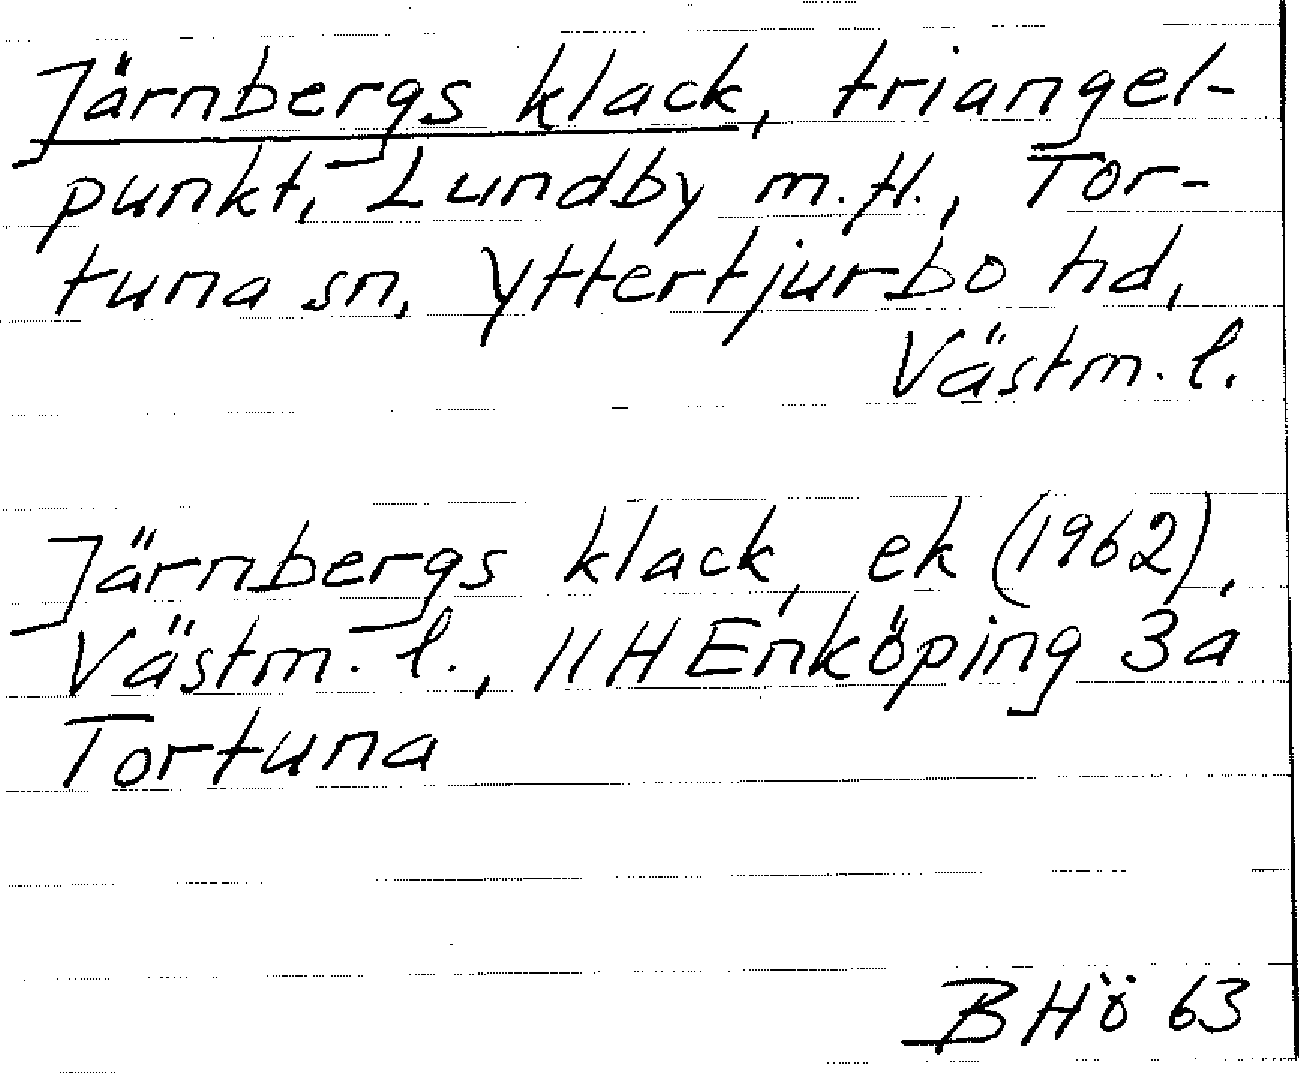 Järnbergs klack, triangel-
punkt, Lundby m.fl., Tor-
tuna sn, Yttertjurbo hd,
Västm. l.
Järnbergs klack, ek (1962),
Västm. l., 11H Enköping 3a
Tortuna
BHö 63